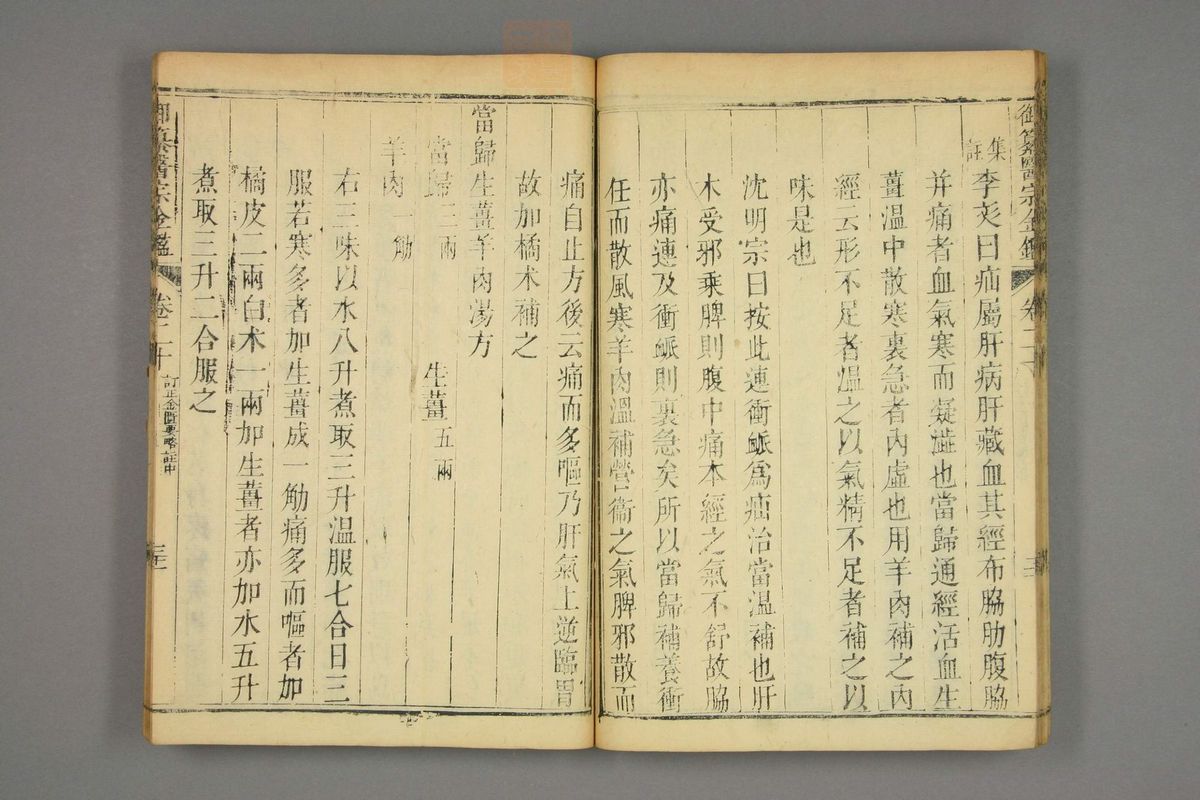 御纂醫宗金鑑 卷二十
集註
李彣曰疝屬肝病肝藏血其經布脇肋腹脇
并痛者血氣寒而凝澁也當歸通經活血生
薑温中散寒裏急者內虛也用羊肉補之內
經云形不足者温之以氣精不足者補之以
味是也
沈明宗曰按此連衝䘑爲疝治當温補也肝
木受邪乘脾則腹中痛本經之氣不舒故脇
亦痛連及衝䘑則裏急矣所以當歸補養衝
任而散風寒羊肉温補營衞之氣脾邪散而
痛自止方後云痛而多嘔乃肝氣上逆臨胃
故加橘术補之
當歸生薑羊肉湯方
當歸三兩 生薑五兩
羊肉一觔
右三味以水八升煮取三升温服七合日三
服若寒多者加生薑成一觔痛多而嘔者加
橘皮二兩白术一兩加生薑者亦加水五升
煮取三升二合服之
御纂醫宗金鑑 卷二十 訂正金匱要略註中